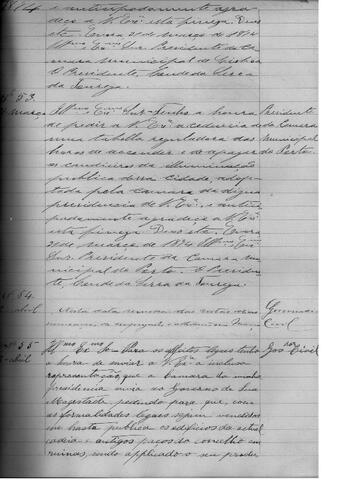 1894
e antecipadamente agra-
deço a V. Exª esta fineza. Deus
etc. Evora 21 de março de 1894
Illmo Exmo Snr. Presidente da Ca-
mara Municipal de Lisboa
O Presidente, Conde da Serra
da Tourega.
Nº 53
março
Illmo Exmo Snr. - Tenho a honra
de pedir a V. Exª a cedencia de
uma tabella reguladora das
horas de accender e de apagar
os candieiros da illuminação
publica dessa cidade, adop-
tada pela camara da digna
presidencia de V. Exª, e anteci-
padamente agradeço a V. Exª
esta fineza. Deus etc. Evora
21 de março de 1894 Illmo Exmo
Snr. Presidente da Camara Mu-
nicipal do Porto. O Presiden-
te, Conde da Serra da Tourega.
Presidente
da Camara
Municipal
do Porto
Nº 54
abril
Nesta data remessa das notas
Governador
Civil
Nº 55
abril
Illmo Exmo Sr. - Para os effeitos legaes tenho
a honra de enviar a V. Exª a inclusa
representação, que a Camara da minha
presidencia envia ao Governo de Sua
Magestade pedindo para que, com
as formalidades legaes sejam vendidos
em hasta publica os edificios da actual
cadeia e antigos paços do concelho em
ruinas, sendo applicado o seu produc-
Gov. Civil